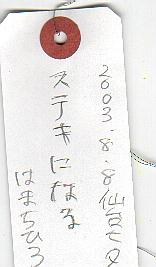 2003.8.8仙台七夕
ステキになる
はまちひろ